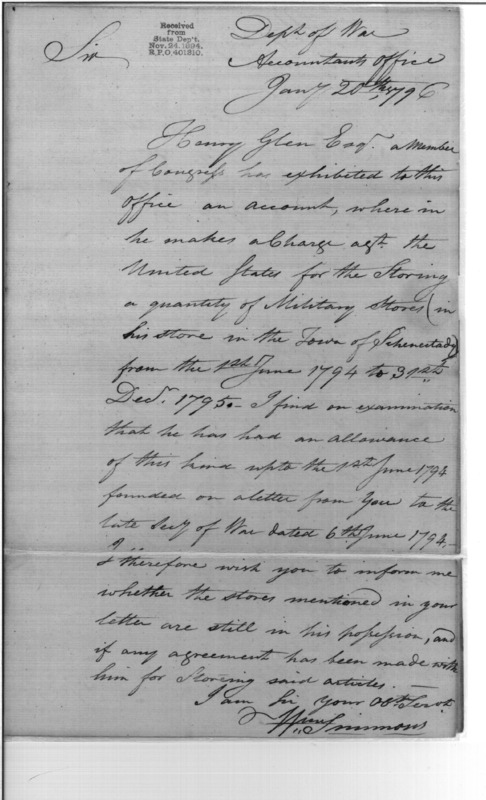 Received
from
State Dep't.
Nov. 24. 1894.
R.P.O. 401310.
Dept of War
Sir
Accountants Office
Jany 20th 1796
Henry Glen Esqr. a Member
of Congress has exhibited to this
Office an account, where in
he makes a Charge agt. the
United States for the Storing
a quantity of Military Stores (in
his store in the Town of Schenectady)
from the 1st June 1794 to 31st
Decr. 1795. I find on examination
that he has had an allowance
of this kind upto the 1st June 1794
founded on a letter from You to the
late Secy of War dated 6th June 1794.
I therefore wish you to inform me
whether the stores mentioned in your
letter are still in his possession, and
if any agreement has been made with
him for Storing said articles.
I am Sir your Obt Servt
Wm Simmons